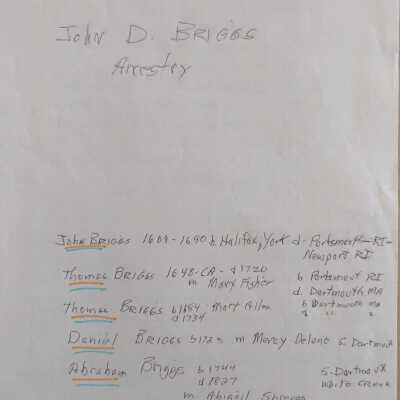 John D. BRIGGS
Ancestry
John BRIGGS 1609-1690 b Halifax, York d- Portsmouth-RI-
Newport RI
Thomas BRIGGS 1648-CA - d 1720 b Portsmouth RI
m Mary Fisher d. Dartmouth MA
Thomas BRIGGS b1684 - Mary Allen b Dartmouth MA
d 1734
Daniel BRIGGS b 1723 m Marcy Delano Dartmouth
Abraham Briggs b 1744 Dartmouth
d 1827
m Abigail